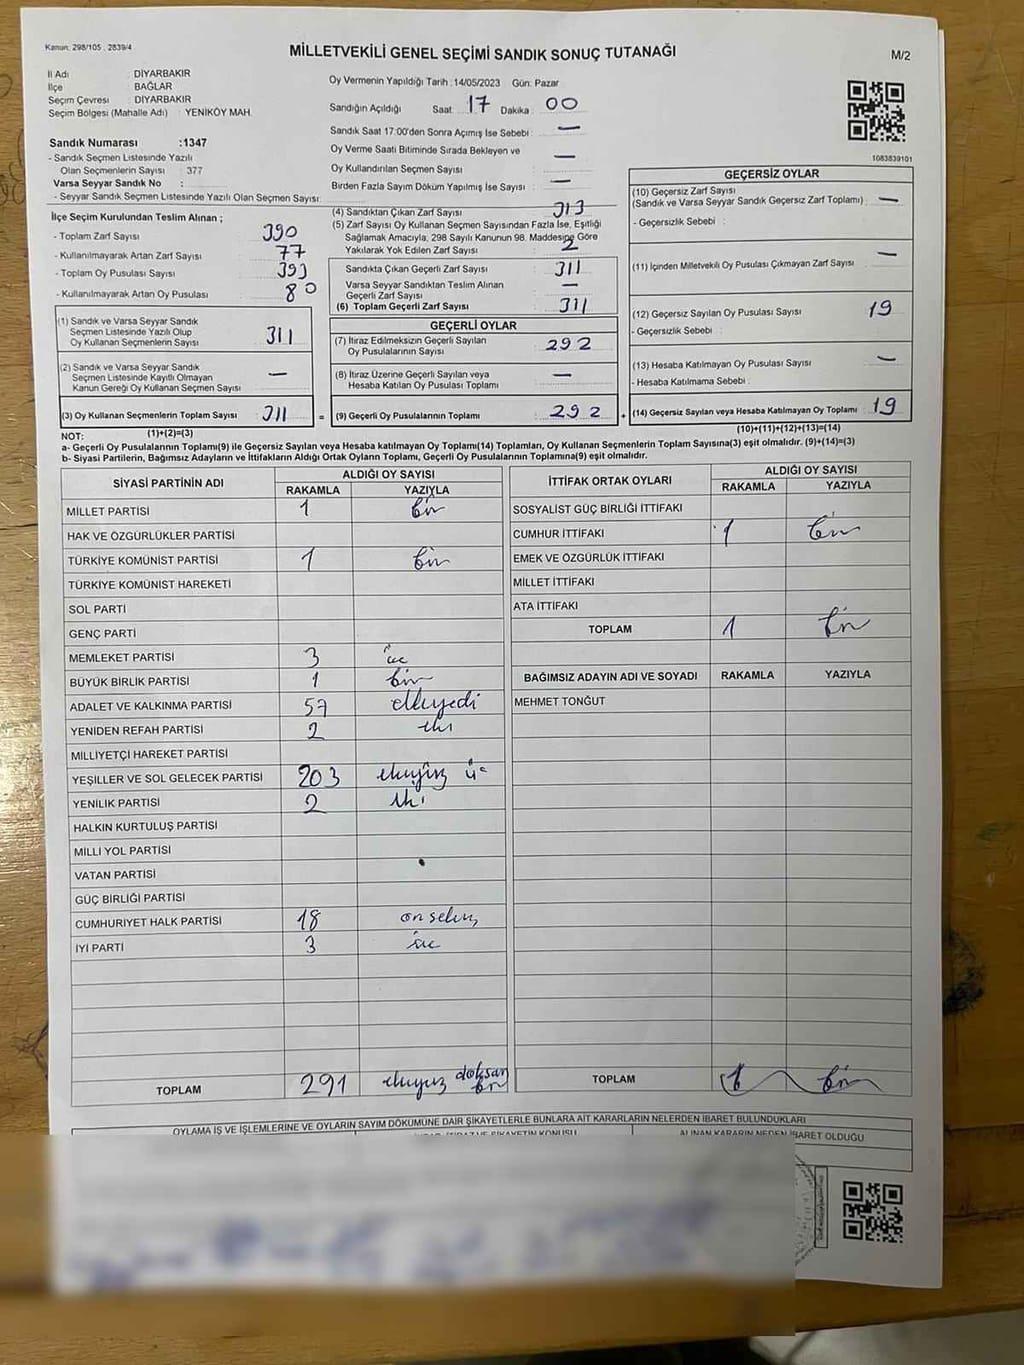 Kanun: 298/105 , 2839/4
MİLLETVEKİLİ GENEL SEÇİMİ SANDIK SONUÇ TUTANAĞI
M/2
İl Adı : DİYARBAKIR
İlçe : BAĞLAR
Seçim Çevresi : DİYARBAKIR
Seçim Bölgesi (Mahalle Adı) : YENİKÖY MAH.
Sandık Numarası :1347
- Sandık Seçmen Listesinde Yazılı
Olan Seçmenlerin Sayısı : 377
Varsa Seyyar Sandık No :
- Seyyar Sandık Seçmen Listesinde Yazılı Olan Seçmen Sayısı:
Oy Vermenin Yapıldığı Tarih :14/05/2023 Gün: Pazar
Sandığın Açıldığı Saat: 17 Dakika : 00
Sandık Saat 17:00'den Sonra Açımış İse Sebebi : —
Oy Verme Saati Bitiminde Sırada Bekleyen ve
Oy Kullandırılan Seçmen Sayısı : —
Birden Fazla Sayım Döküm Yapılmış İse Sayısı : —
1083839101
İlçe Seçim Kurulundan Teslim Alınan ;
- Toplam Zarf Sayısı : 390
- Kullanılmayarak Artan Zarf Sayısı : 77
- Toplam Oy Pusulası Sayısı : 393
- Kullanılmayarak Artan Oy Pusulası : 80
(1) Sandık ve Varsa Seyyar Sandık
Seçmen Listesinde Yazılı Olup
Oy Kullanan Seçmenlerin Sayısı : 311
(2) Sandık ve Varsa Seyyar Sandık
Seçmen Listesinde Kayıtlı Olmayan
Kanun Gereği Oy Kullanan Seçmen Sayısı : —
(3) Oy Kullanan Seçmenlerin Toplam Sayısı : 311 =
(1)+(2)=(3)
(4) Sandıktan Çıkan Zarf Sayısı : 313
(5) Zarf Sayısı Oy Kullanan Seçmen Sayısından Fazla İse, Eşitliği
Sağlamak Amacıyla, 298 Sayılı Kanunun 98. Maddesine Göre
Yakılarak Yok Edilen Zarf Sayısı : 2
Sandıkta Çıkan Geçerli Zarf Sayısı : 311
Varsa Seyyar Sandıktan Teslim Alınan
Geçerli Zarf Sayısı : —
(6) Toplam Geçerli Zarf Sayısı : 311
GEÇERLİ OYLAR
(7) İtiraz Edilmeksizin Geçerli Sayılan
Oy Pusulalarının Sayısı : 292
(8) İtiraz Üzerine Geçerli Sayılan veya
Hesaba Katılan Oy Pusulası Toplamı : —
(9) Geçerli Oy Pusulalarının Toplamı : 292 +
GEÇERSİZ OYLAR
(10) Geçersiz Zarf Sayısı
(Sandık ve Varsa Seyyar Sandık Geçersiz Zarf Toplamı) : —
- Geçersizlik Sebebi :
(11) İçinden Milletvekili Oy Pusulası Çıkmayan Zarf Sayısı : —
(12) Geçersiz Sayılan Oy Pusulası Sayısı : 19
- Geçersizlik Sebebi :
(13) Hesaba Katılmayan Oy Pusulası Sayısı : —
- Hesaba Katılmama Sebebi :
(14) Geçersiz Sayılan veya Hesaba Katılmayan Oy Toplamı : 19
(10)+(11)+(12)+(13)=(14)
NOT:
a- Geçerli Oy Pusulaları Toplamı(9) ile Geçersiz Sayılan veya Hesaba katılmayan Oy Toplamı(14) Toplamları, Oy Kullanan Seçmenlerin Toplam Sayısına(3) eşit olmalıdır. (9)+(14)=(3)
b- Siyasi Partilerin, Bağımsız Adayların ve İttifakların Aldığı Ortak Oyların Toplamı, Geçerli Oy Pusulalarının Toplamına(9) eşit olmalıdır.
SİYASİ PARTİNİN ADI ALDIĞI OY SAYISI
RAKAMLA YAZIYLA
MİLLET PARTİSİ 1 bir
HAK VE ÖZGÜRLÜKLER PARTİSİ
TÜRKİYE KOMÜNİST PARTİSİ 1 bir
TÜRKİYE KOMÜNİST HAREKETİ
SOL PARTİ
GENÇ PARTİ
MEMLEKET PARTİSİ 3 üç
BÜYÜK BİRLİK PARTİSİ 1 bir
ADALET VE KALKINMA PARTİSİ 57 elliyedi
YENİDEN REFAH PARTİSİ 2 iki
MİLLİYETÇİ HAREKET PARTİSİ
YEŞİLLER VE SOL GELECEK PARTİSİ 203 ikiyüz üç
YENİLİK PARTİSİ 2 iki
HALKIN KURTULUŞ PARTİSİ
MİLLİ YOL PARTİSİ
VATAN PARTİSİ
GÜÇ BİRLİĞİ PARTİSİ
CUMHURİYET HALK PARTİSİ 18 onsekiz
İYİ PARTİ 3 üç
TOPLAM 291 ikiyüz doksan bir
İTTİFAK ORTAK OYLARI ALDIĞI OY SAYISI
RAKAMLA YAZIYLA
SOSYALİST GÜÇ BİRLİĞİ İTTİFAKI
CUMHUR İTTİFAKI 1 bir
EMEK VE ÖZGÜRLÜK İTTİFAKI
MİLLET İTTİFAKI
ATA İTTİFAKI
TOPLAM 1 bir
BAĞIMSIZ ADAYIN ADI VE SOYADI RAKAMLA YAZIYLA
MEHMET TONĞUT
TOPLAM 1 bir
OYLAMA İŞ VE İŞLEMLERİNE VE OYLARIN SAYIM DÖKÜMÜNE DAİR ŞİKAYETLERLE BUNLARA AİT KARARLARIN NELERDEN İBARET BULUNDUKLARI
ALINAN KARARIN NEDEN İBARET OLDUĞU